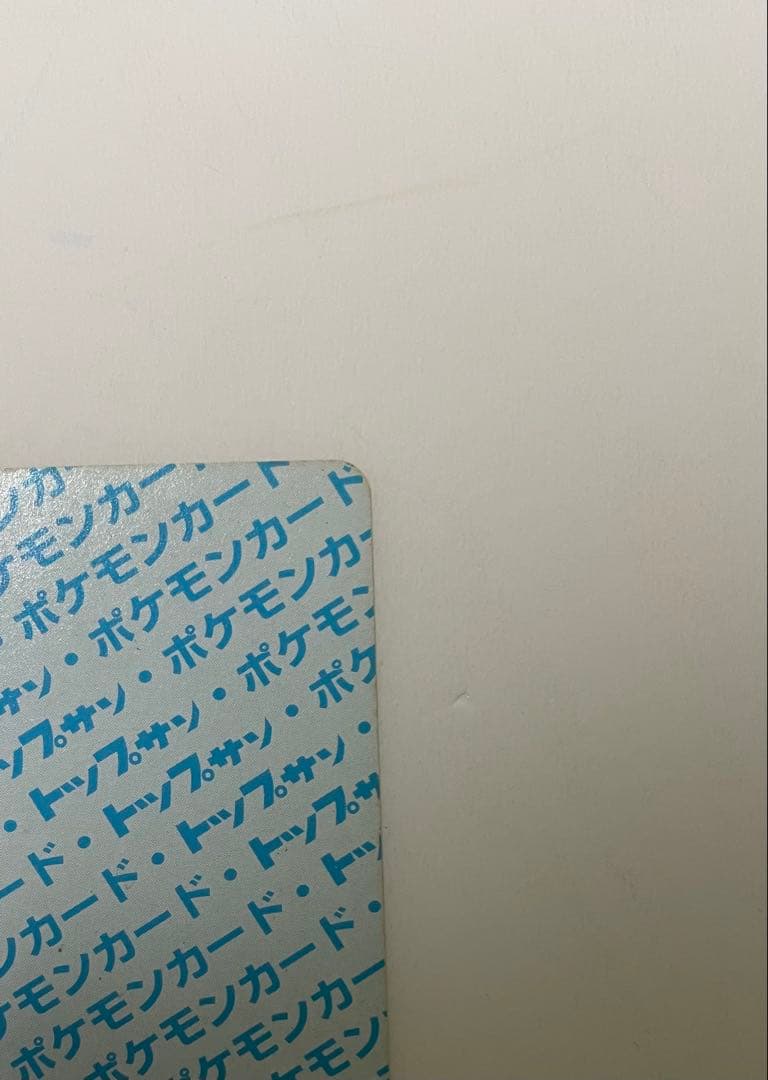 ンカ
ケモンカー
・ポケモンカード
サン・ポケモンカード
ップサン・ポケモンカー
・トップサン・ポケモン
ード・トップサン・ポケ
ンカード・トップサン・
ケモンカード・トップサ
ポケモンカード・トッ
ポケモンカード・
ケモンカー
モン